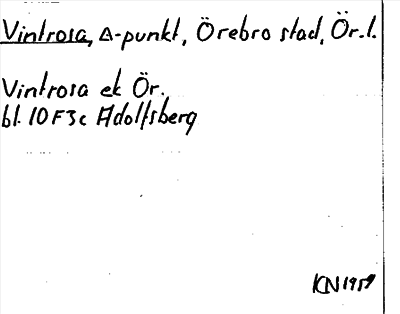 Vintrosa, Δ-punkt, Örebro stad, Ör.l.
Vintrosa ek Ör.
bl. 10F3c Adolfsberg
KN 1959